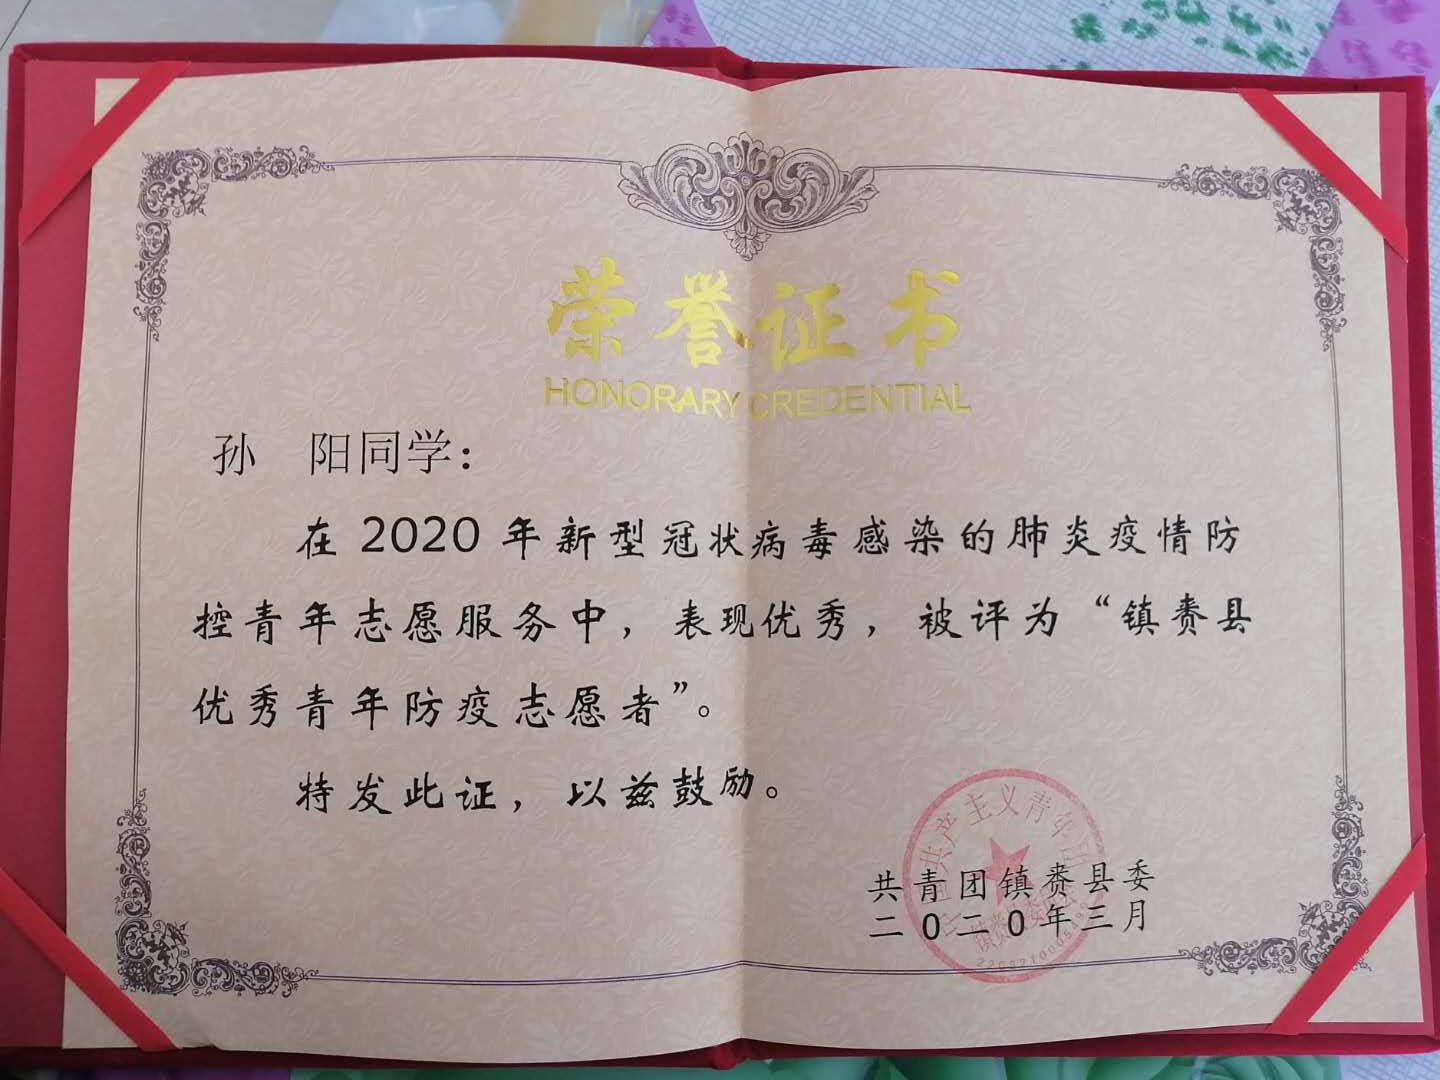 荣誉证书
HONORARY CREDENTIAL
孙 阳同学：
在 2020 年新型冠状病毒感染的肺炎疫情防
控青年志愿服务中，表现优秀，被评为“镇赉县
优秀青年防疫志愿者”。
特发此证，以兹鼓励。
共产主义青年团
共青团镇赉县委
二〇二〇年三月